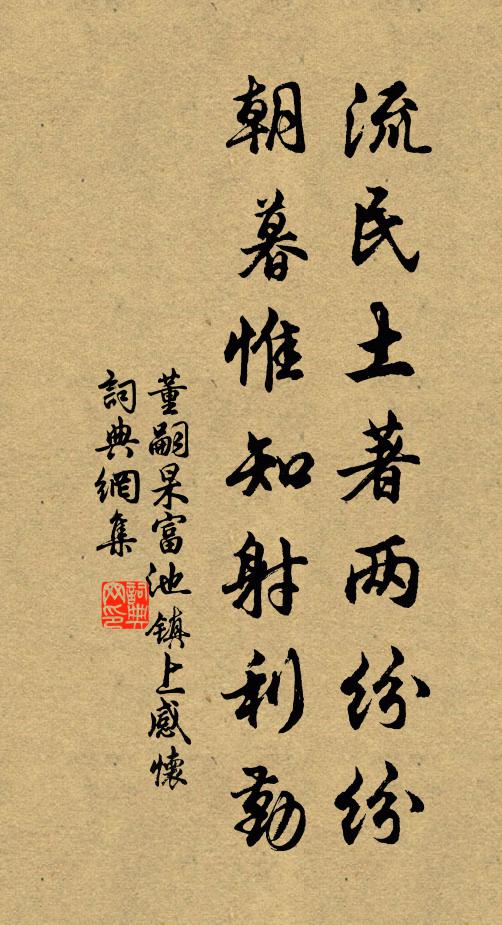 流民土著两纷纷
朝暮惟知射利勤
董嗣杲富池镇上感怀
詞典網集
詞典网印